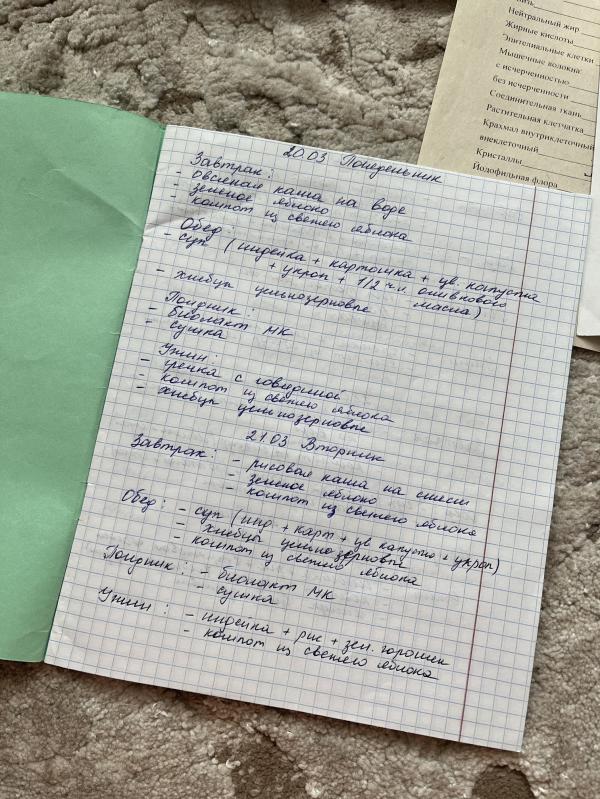 Нейтральный жир
Жирные кислоты
Эпителиальные клетки
Мышечные волокна:
с исчерченностью
без исчерченности
Соединительная ткань
Растительная клетчатка
Крахмал внутриклеточный
внеклеточный
Кристаллы
Йодофильная флора
20.03 Понедельник
Завтрак:
- овсяная каша на воде
- зеленое яблоко
- компот из свежего яблока
Обед:
- суп (индейка + картошка + цв. капуста
+ укроп + 1/2 ч.л. оливкового
масла)
- хлебцы цельнозерновые
Полдник:
- биолакт МК
- сушка
Ужин:
- гречка с говядиной
- компот из свежего яблока
- хлебцы цельнозерновые
21.03 Вторник
Завтрак: - рисовая каша на смеси
- зеленое яблоко
- компот из свежего яблока
Обед: - суп (инд. + карт + цв капуста + укроп)
- хлебцы цельнозерновые
- компот из свежего яблока
Полдник: - биолакт МК
- сушка
Ужин: - индейка + рис + зел. горошек
- компот из свежего яблока